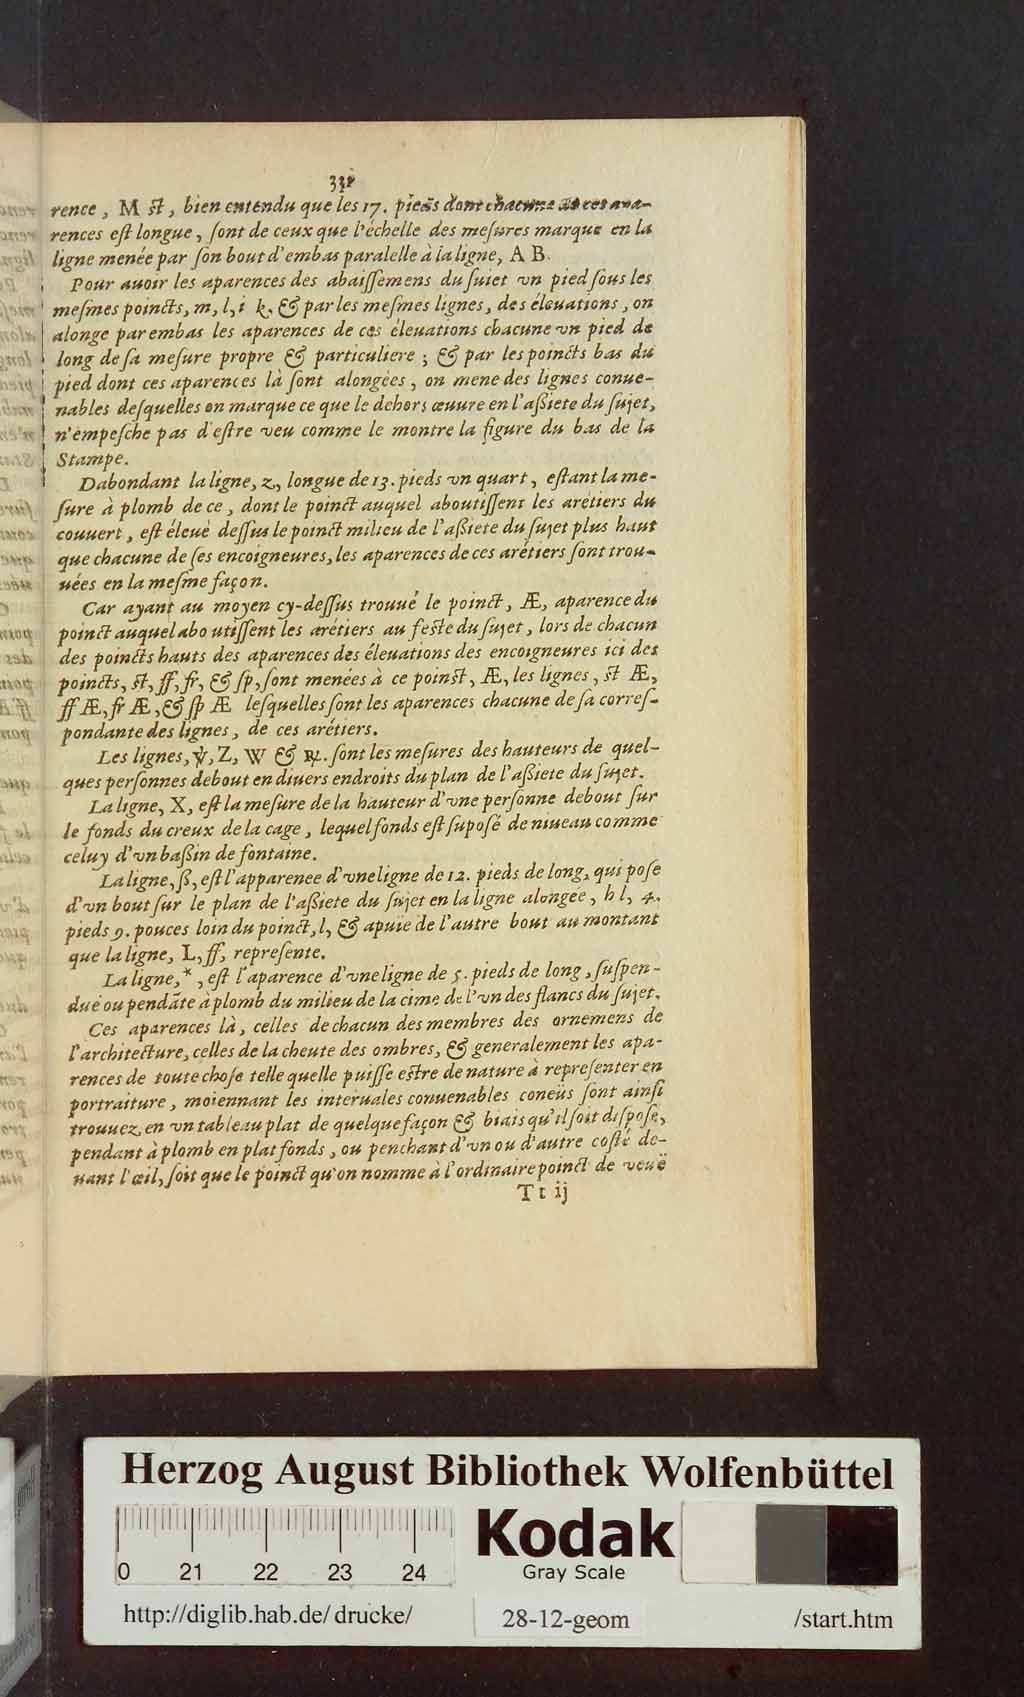 rence, M ſt, bien entendu que les 17. pieds dont chacune de ces apa-
rences eſt longue, ſont de ceux que l'échelle des meſures marque en la
ligne menée par ſon bout d'embas paralelle à la ligne, A B.
Pour auoir les aparences des abaiſſemens du ſuiet vn pied ſous les
meſmes poincts, m, l, i k, & par les meſmes lignes, des éleuations, on
alonge par embas les aparences de ces éleuations chacune vn pied de
long de ſa meſure propre & particuliere ; & par les poincts bas du
pied dont ces aparences là ſont alongées, on mene des lignes conue-
nables deſquelles on marque ce que le dehors œuure en l'aßiete du ſujet,
n'empeſche pas d'eſtre veu comme le montre la figure du bas de la
Stampe.
Dabondant la ligne, z, longue de 13. pieds vn quart, eſtant la me-
ſure à plomb de ce, dont le poinct auquel aboutiſſent les arétiers du
couuert, eſt éleué deſſus le poinct milieu de l'aßiete du ſujet plus haut
que chacune de ſes encoigneures, les aparences de ces arétiers ſont trou-
uées en la meſme façon.
Car ayant au moyen cy-deſſus trouué le poinct, Æ, aparence du
poinct auquel abo utiſſent les arétiers au feſte du ſujet, lors de chacun
des poincts hauts des aparences des éleuations des encoigneures ici des
poincts, ſt, ff, fr, & ſp, ſont menées à ce poinct, Æ, les lignes, ſt Æ,
ff Æ, fr Æ, & ſp Æ leſquelles ſont les aparences chacune de ſa correſ-
pondante des lignes, de ces arétiers.
Les lignes, , Z, W & . ſont les meſures des hauteurs de quel-
ques perſonnes debout en diuers endroits du plan de l'aßiete du ſujet.
La ligne, X, eſt la meſure de la hauteur d'vne perſonne debout ſur
le fonds du creux de la cage, lequel fonds eſt ſupoſé de niueau comme
celuy d'vn baßin de fontaine.
La ligne, ß, eſt l'apparenee d'vne ligne de 12. pieds de long, qui poſe
d'vn bout ſur le plan de l'aßiete du ſujet en la ligne alongée, h l, 4.
pieds 9. pouces loin du poinct, l, & apuie de l'autre bout au montant
que la ligne, L, ff, repreſente.
La ligne, *, eſt l'aparence d'vne ligne de 5. pieds de long, ſuſpen-
duë ou pendāte à plomb du milieu de la cime de l'vn des flancs du ſujet.
Ces aparences là, celles de chacun des membres des ornemens de
l'architecture, celles de la cheute des ombres, & generalement les apa-
rences de toute choſe telle quelle puiſſe eſtre de nature à repreſenter en
portraiture, moiennant les interuales conuenables coneüs ſont ainſi
trouuez en vn tableau plat de quelque façon & biais qu'il ſoit diſpoſé,
pendant à plomb en plat fonds, ou penchant d'vn ou d'autre coſté de-
uant l'œil, ſoit que le poinct qu'on nomme à l'ordinaire poinct de veuë
Tt ij
Herzog August Bibliothek Wolfenbüttel
0 21 22 23 24
Kodak
Gray Scale
http://diglib.hab.de/drucke/ 28-12-geom /start.htm